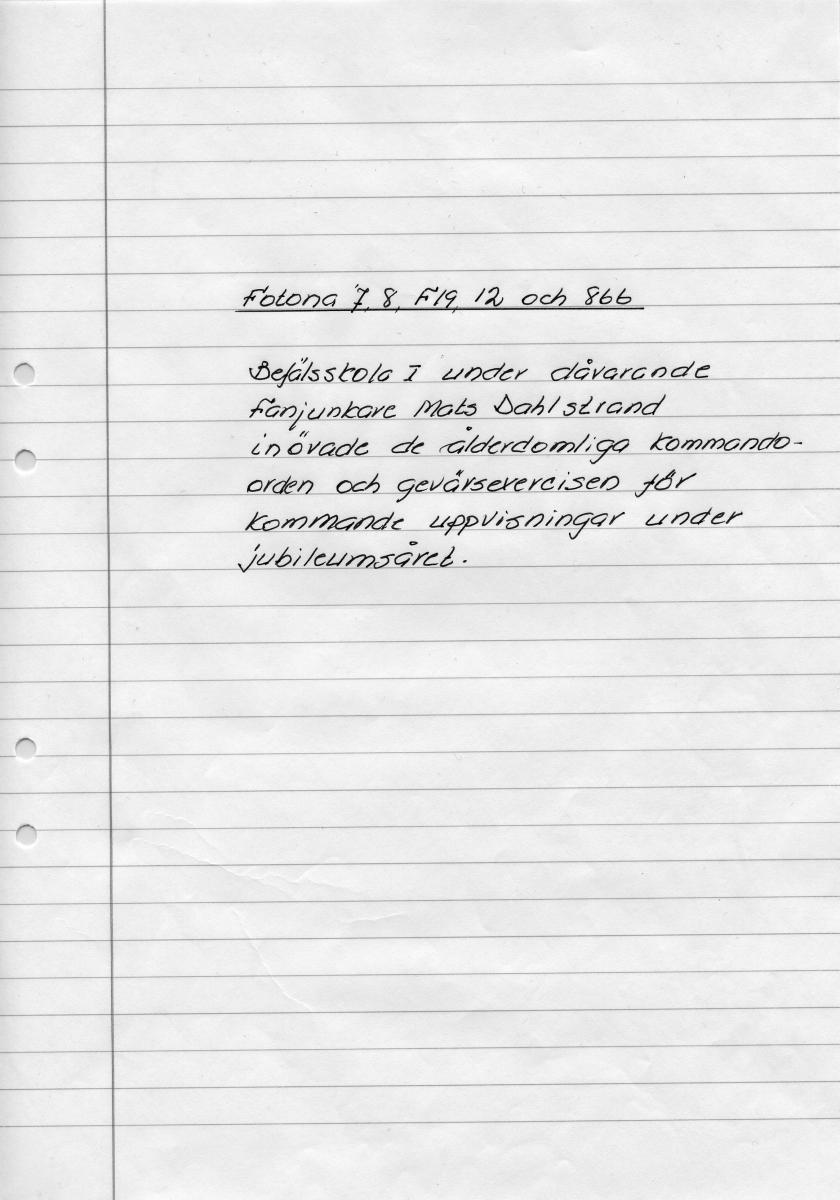 Fotona 7, 8, F19, 12 och 866
Befälsskola I under dåvarande
Fanjunkare Mats Dahlstrand
inövade de ålderdomliga kommando-
orden och gevärsexercisen för
kommande uppvisningar under
jubileumsåret.